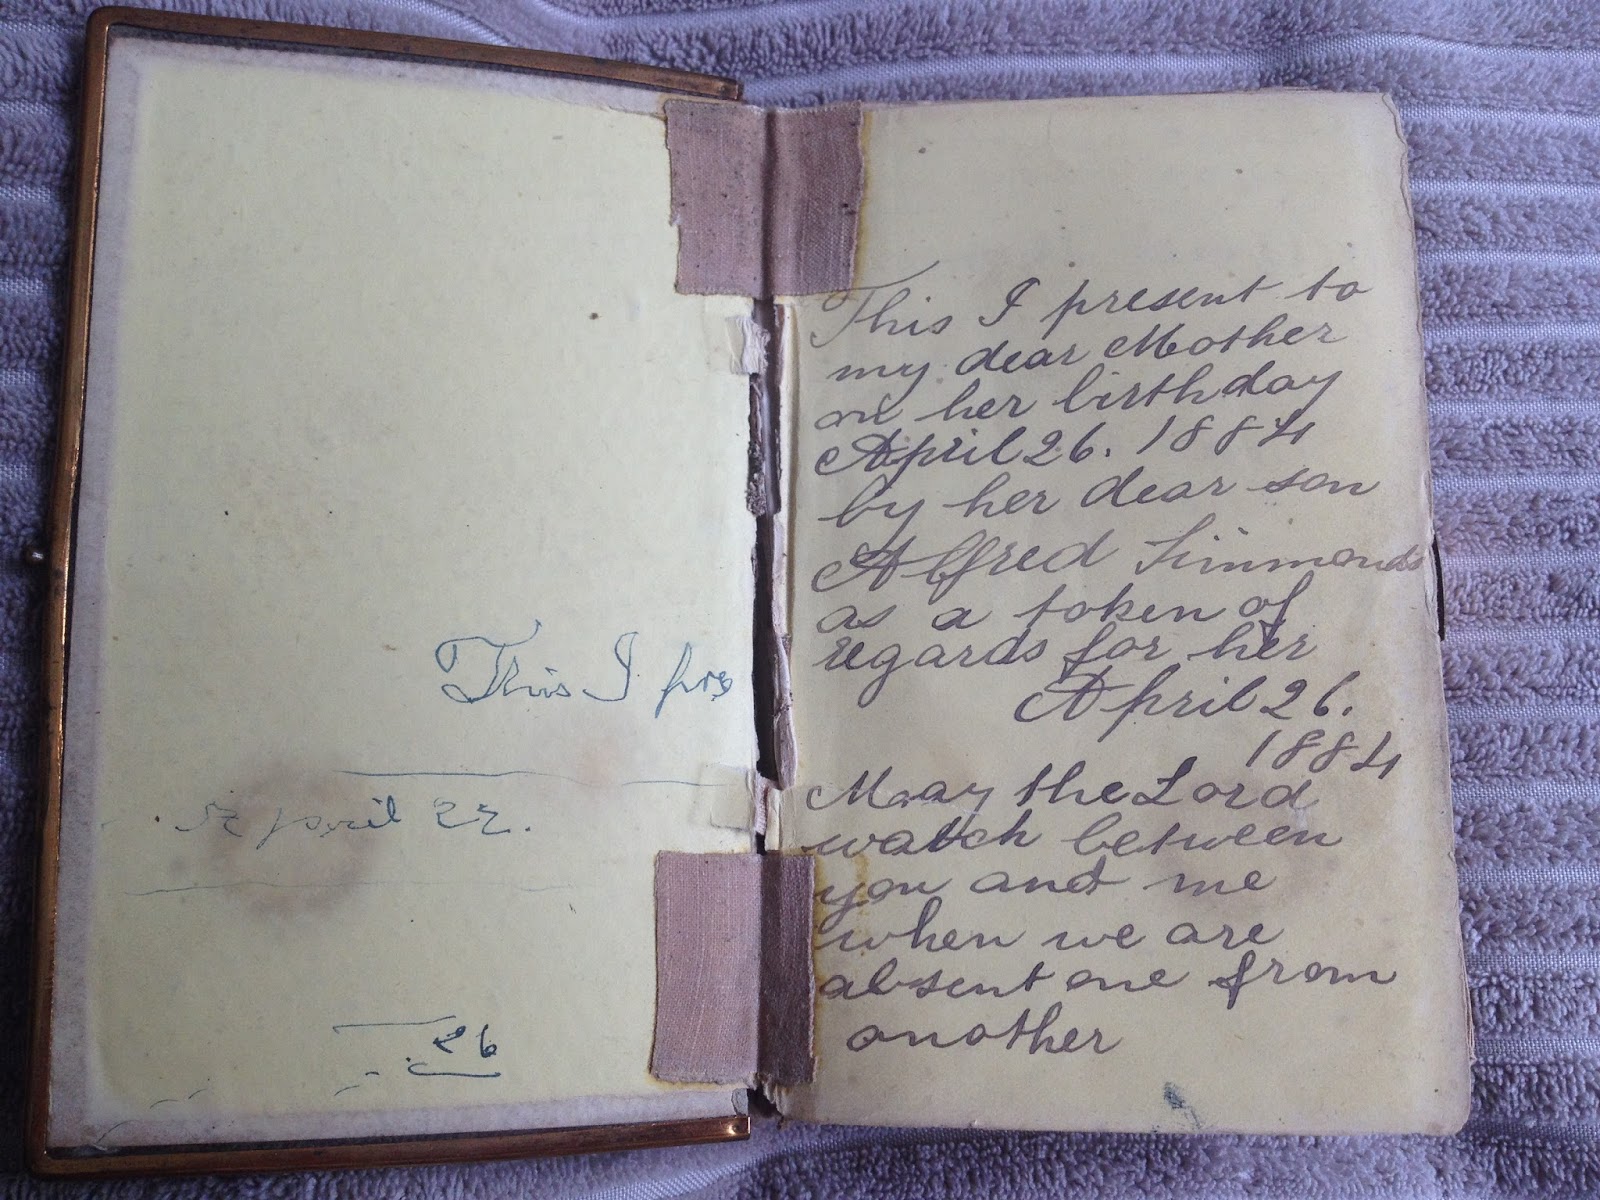 This I pres
April 22.
26
This I present to
my dear Mother
on her birthday
April 26. 1884
by her dear son
Alffred Simmonds
as a token of
regards for her
April 26.
1884
May the Lord
watch between
you and me
when we are
absent one from
another